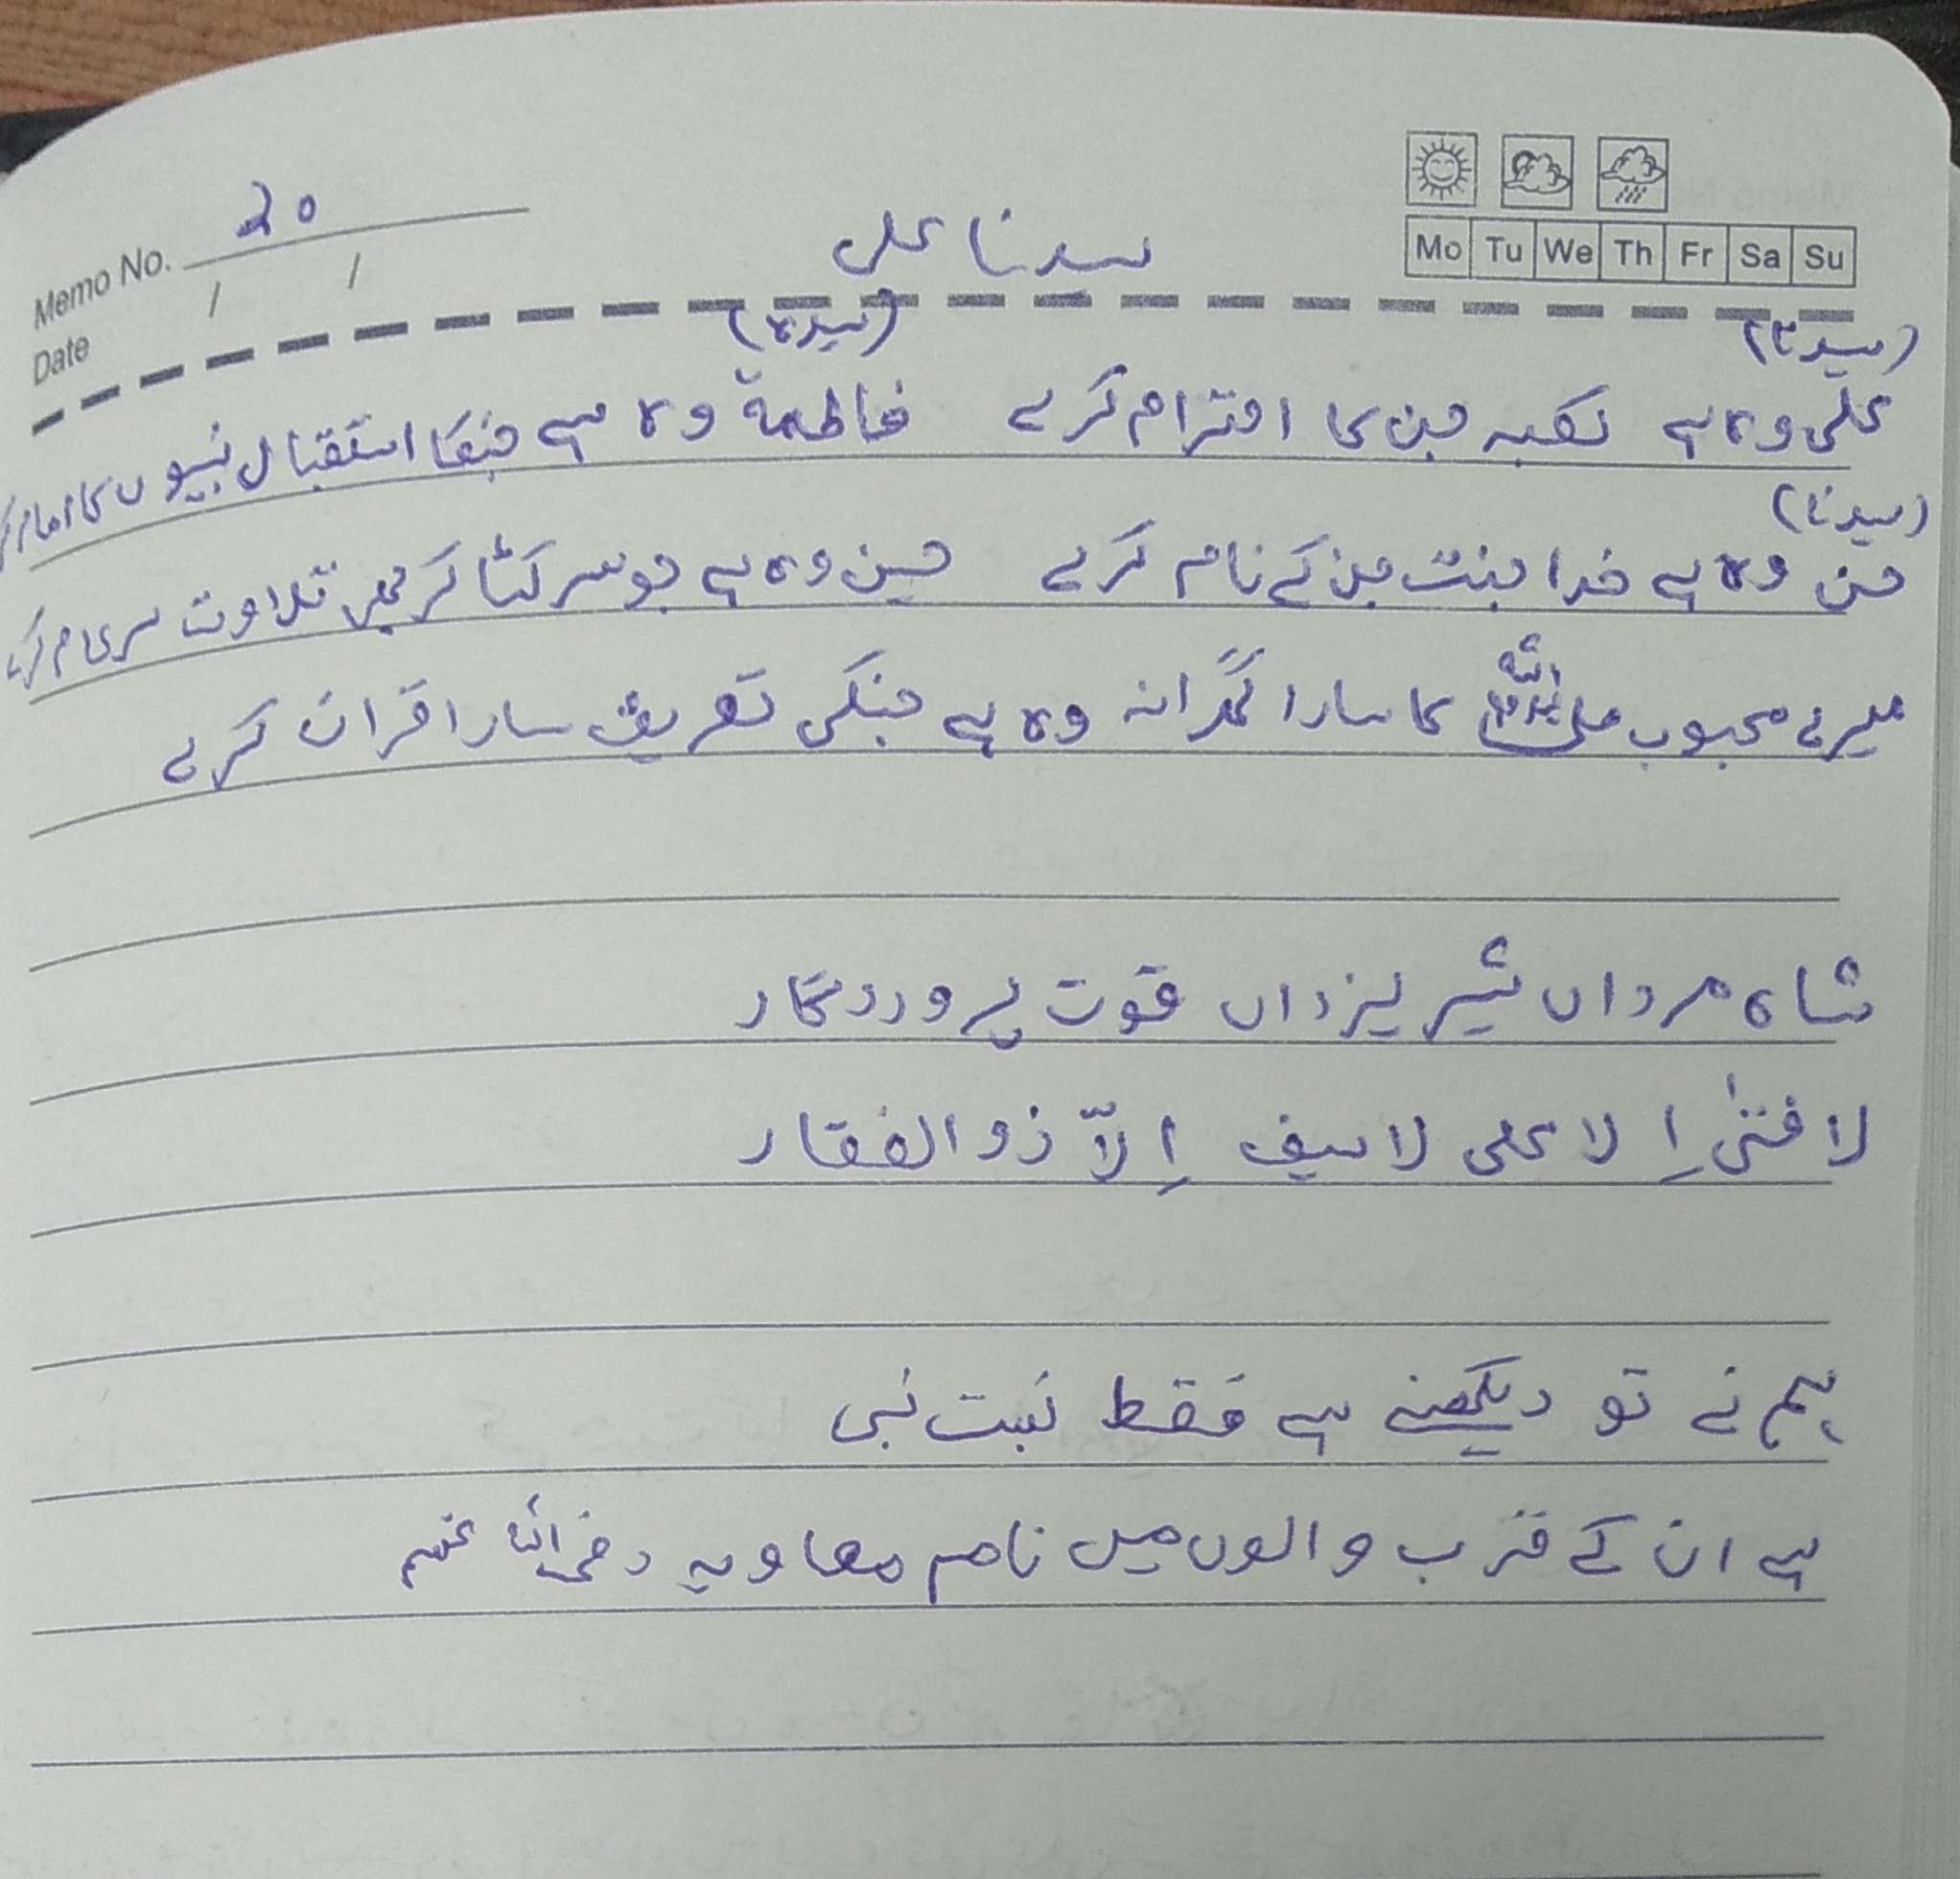 Memo No. 20
Date / /
Mo Tu We Th Fr Sa Su
سیدنا علی
(سیدنا) (سیدہ)
علی وہ ہے کعبہ جن کا احترام کرے فاطمہ وہ ہے جنکا استقبال نبیوں کا امام کرے
(سیدنا)
حسن وہ ہے خدا جنت جن کے نام کرے حسین وہ ہے جو سر کٹا کر بھی تلاوت سرعام کرے
میرے محبوب صلی اللہ علیہ وسلم کا سارا گھرانہ وہ ہے جنکی تعریف سارا قرآن کرے
شاہ مرداں شیر یزداں قوت پروردگار
لا فتیٰ اِلا علی لا سیف اِلاّ ذوالفقار
ہم نے تو دیکھنے ہے فقط نسبت نبی
ہے ان کے قرب والوں میں نام معاویہ رضی اللہ عنہ